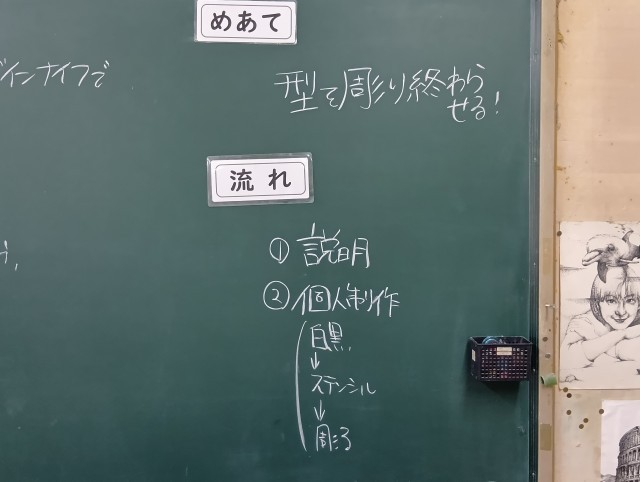 めあて
インナイフで
型を彫り終わら
せる!
流れ
① 説明
② 個人制作
白黒
↓
ステンシル
↓
彫る